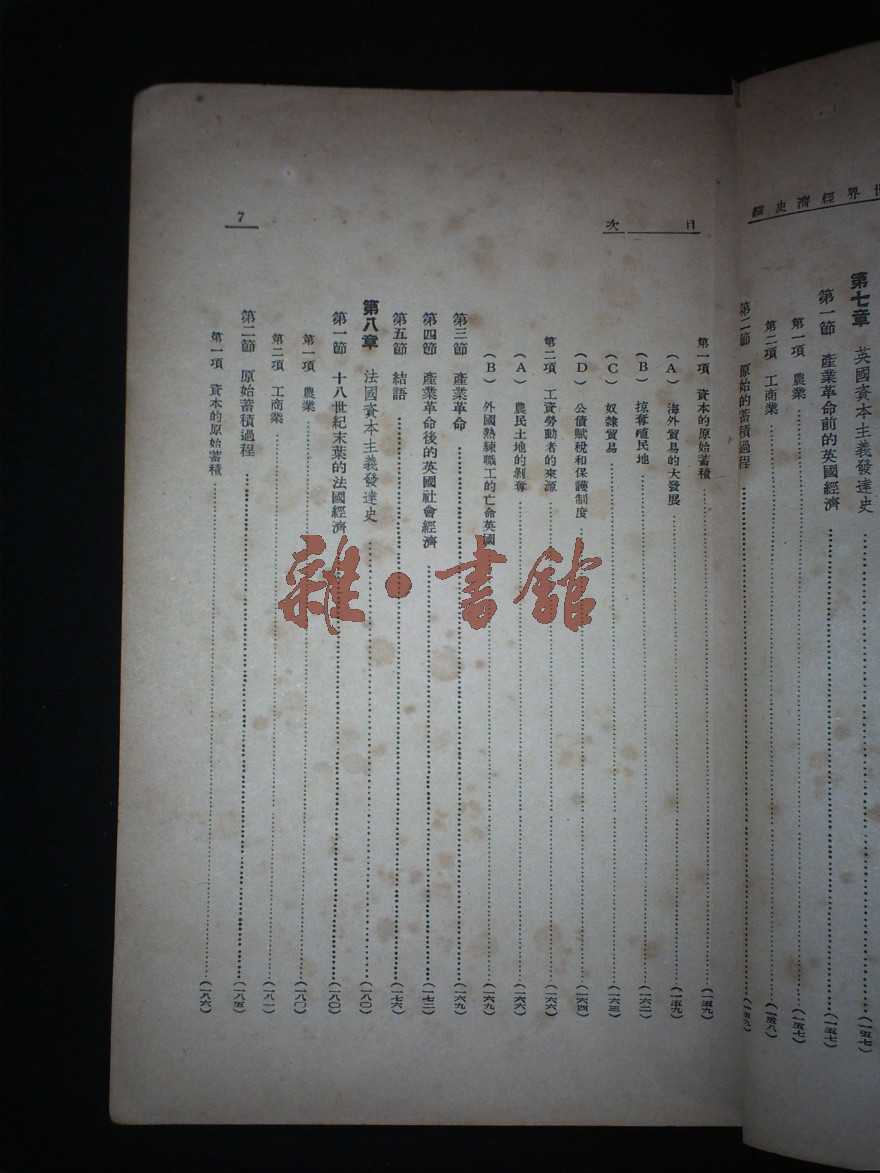 界經濟史綱
第七章 英國資本主義發達史……(一五七)
第一節 產業革命前的英國經濟……(一五七)
第一項 農業……(一五七)
第二項 工商業……(一五八)
第二節 原始的蓄積過程……(一五九)
目次
第一項 資本的原始蓄積……(一五九)
(A) 海外貿易的大發展……(一五九)
(B) 掠奪殖民地……(一六二)
(C) 奴隸貿易……(一六三)
(D) 公債賦稅和保護制度……(一六四)
第二項 工資勞動者的來源……(一六六)
(A) 農民土地的剝奪……(一六六)
(B) 外國熟練職工的亡命英國……(一六九)
第三節 產業革命……(一六九)
第四節 產業革命後的英國社會經濟……(一七二)
第五節 結語……(一七六)
第八章 法國資本主義發達史……(一八〇)
第一節 十八世紀末葉的法國經濟……(一八〇)
第一項 農業……(一八〇)
第二項 工商業……(一八一)
第二節 原始蓄積過程……(一八五)
第一項 資本的原始蓄積……(一八六)
7
雜·書館